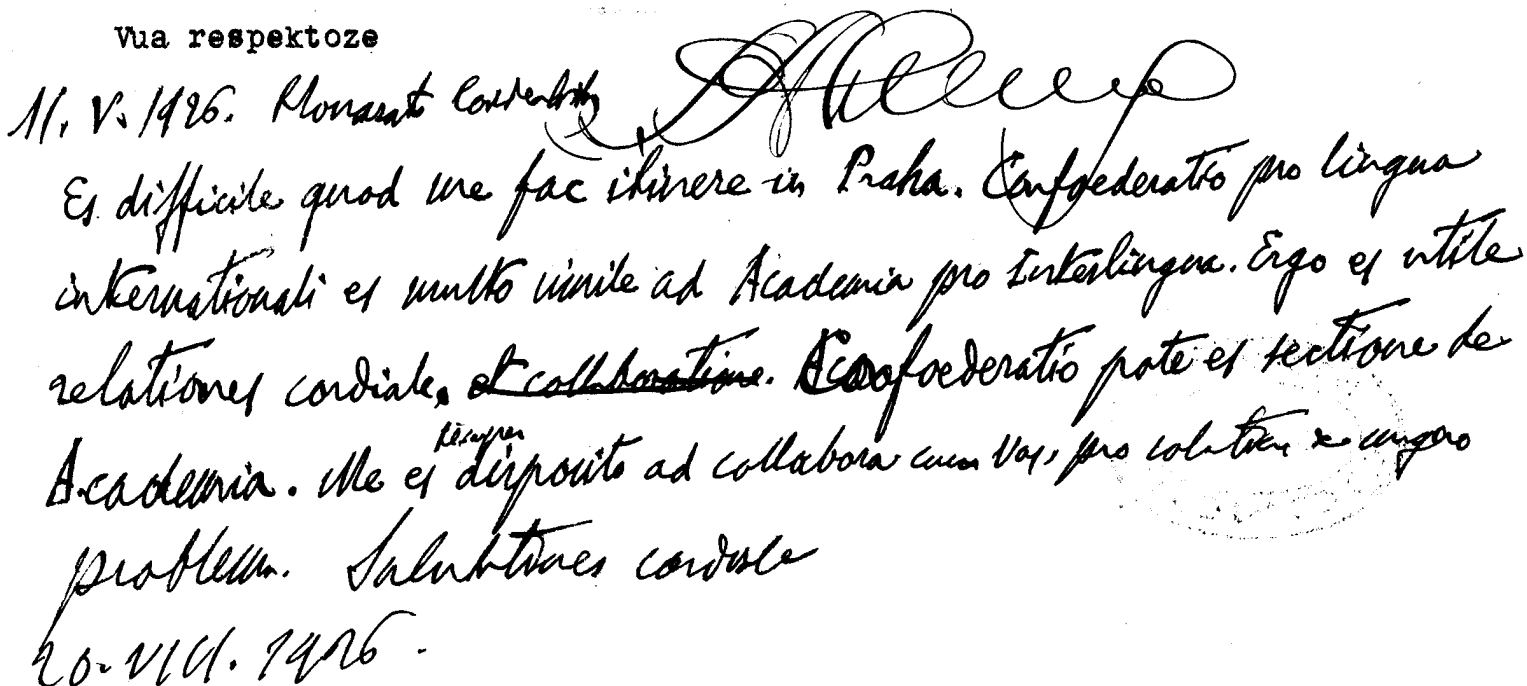 Vua respektoze
11. V. 1926.
Es difficile quod me fac itinere in Praha. Confoederatio pro lingua
internationali es multo simile ad Academia pro Interlingua. Ergo es utile
relationes cordiale. et collaboratione. Confoederatio pote es sectione de
Academia. Me es semper disposito ad collabora cum Vos, pro solutione
problema. Salutationes cordiale
20. VIII. 1926.